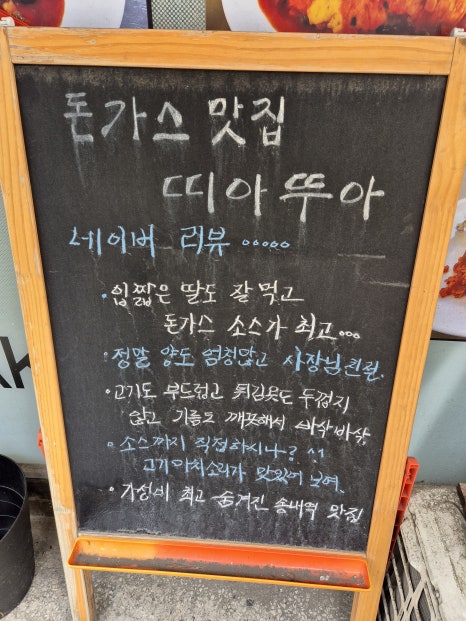 돈가스 맛집
띠아뚜아
네이버 리뷰 .....
· 입짧은 딸도 잘 먹고
돈가스 소스가 최고...
· 정말 양도 엄청많고 사장님친절.
· 고기도 부드럽고 튀김옷도 두껍지
않고 기름도 깨끗해서 바삭바삭.
· 소스까지 직접하시나? 서
고기 마치소리가 맛있어 보여.
· 가성비 최고 숨겨진 송내역 맛집